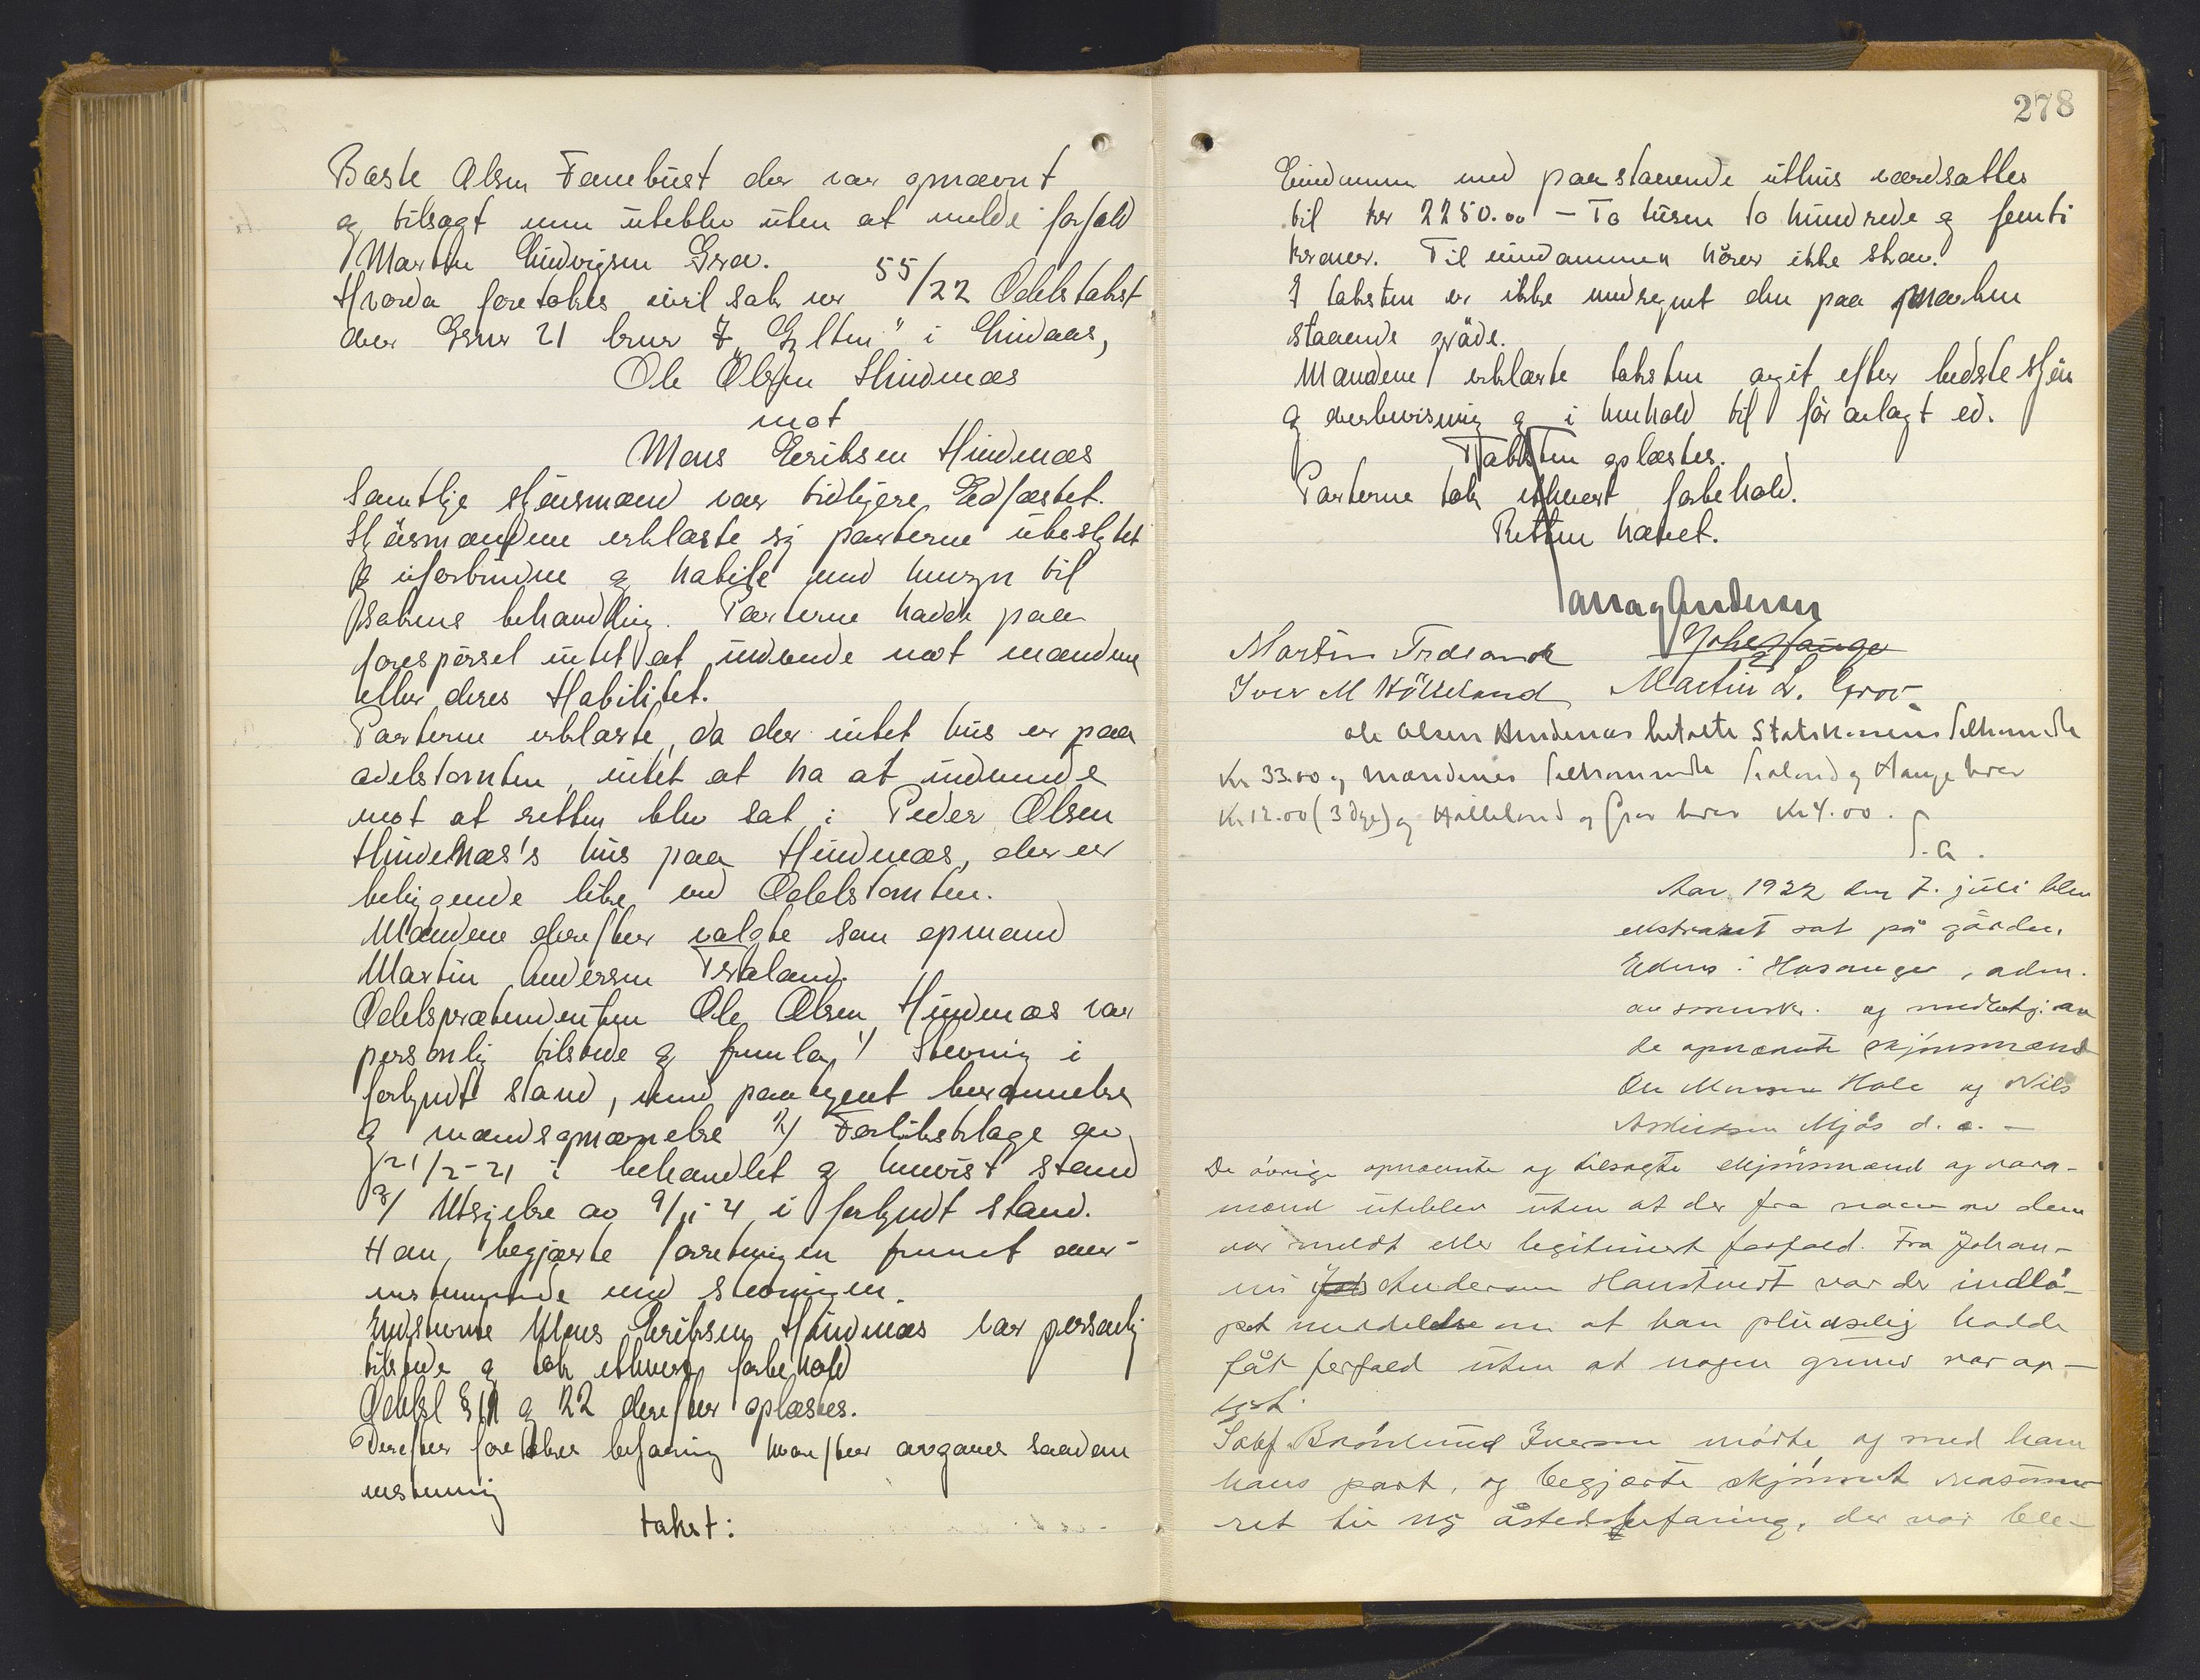 Børste Olsen Fanebust der var opnævnt
og tilsagt men uteblev uten at melde forfald
Martin Lindvigsen Grov.
Hvorda foretokes civil sak nr 55/22 Odelstakst
over Gsnr 21 bnr 7 "Gjlten" i Lindaas,
Ole Olsen Hindenæs
mot
Mons Eriksen Hindenæs
Samtlige skjønsmænd var tidligere Edfæstet.
Skjønsmændene erklærte sig parterne ubeslegtet
og uforbundne og habile med hensyn til
sakens behandling. Parterne hadde paa
forespørsel intet at indvende mot mændene
eller deres Habilitet.
Parterne erklærte, da der intet hus er paa
odelstomten, intet at ha at indvende
mot at retten blev sat i Peder Olsen
Hindenæs's hus paa Hindenæs, der er
beliggende like ved Odelstomten.
Mændene derefter valgte som opmand
Martin Andersen Træland.
Odelsprætendenten Ole Olsen Hindenæs var
personlig tilstede og fremla 1/ Stevning i
forkyndt stand, med paategnet berammelse
og mændsopnævnelse 2/ Forliksklage av
21/2-21 i behandlet og henvist stand
3/ Utskrift av 9/11-21 i forkyndt stand.
Han begjærte forretningen fremet over-
ensstemmende med stevningen.
Indstevnte Mons Eriksen Hindenæs var personlig
tilstede og tok ethvert forbehold
Odelsl § 11 og 22 derefter oplæstes.
Derefter foretokes befaring hvorefter avgaves saadan
enstemmig
takst:
278
Eiendommen med paastaaende uthus værdsættes
til kr 2250.00 - To tusen to hundrede og femti
kroner. Til eiendommen hører ikke skov.
I taksten er ikke medregnet den paa marken
staaende grøde.
Mændene erklærte taksten avgit efter bedste skjøn
og overbevisning og i henhold til før avlagt ed.
Taksten oplæstes.
Parterne tok ethvert forbehold.
Retten hævet.
Martin Træland
Iver M Hølleland Martin L. Grov
Ole Olsen Hindenæs betalte Statskassens tilkommende
Kr 33.00 og mændenes tilkommende Træland og Hauge hver
Kr 12.00 (3 dge) og Hølleland og Grov hver Kr 4.00.
Aar 1922 den 7. juli blev
ekstraret sat på gården
Eidnes i Hosanger, adm.
av sorenskr. og medbetj. av
de opnævnte skjønsmænd
Ole Monsen Hole og Nils
Andersen Mjøs d. a. -
De øvrige opnævnte og tilsagte skjønsmænd og vara-
mænd uteblev uten at der fra noen av dem
var meldt eller legitimert forfald. Fra Johan-
nes Andersen Hanstveit var der indlø-
pet meddelelse om at han pludselig hadde
fåt forfald uten at nogen grund var op-
lyst.
Sakf. Brønlund Iversen mødte og med ham
hans part, og begjærte skjønnet reasumer
ret til ny åstedsbefaring, der var ble-